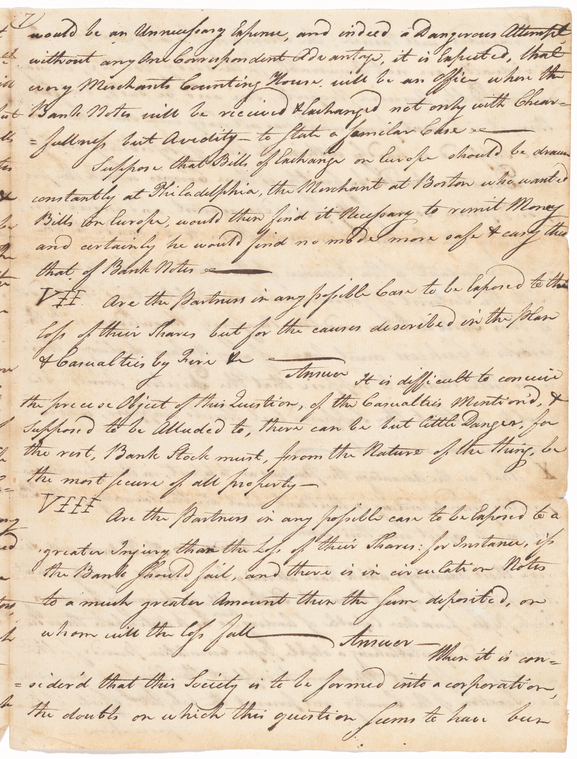 would be an Unnecessary Expense, and indeed a Dangerous Attempt
without any One Correspondent Advantage, it is Expected, that
every Merchants Counting House will be an Office where the
Bank Notes will be received & Exchanged not only with Chear=
=fullness but Avidity — to State a familiar Case —
Suppose that Bills of Exchange on Europe should be drawn
constantly at Philadelphia, the Merchant at Boston who wanted
Bills on Europe, would then find it Necessary to remit Money
and certainly he would find no mode more safe & easy then
that of Bank Notes —
VII Are the Partners in any possible Case to be Exposed to the
Loss of their Shares but for the causes described in the plan
& Casualties by Fire &c — Answer
It is difficult to conceive
the precise Object of this Question, of the Casualties Mention'd, &
supposed to be Alluded to, there can be but little Danger, for
the rest, Bank Stock must, from the Nature of the thing, be
the most secure of all property —
VIII Are the Partners in any possible case to be Exposed to a
greater Injury than the Loss of their Shares: for Instance, if
the Bank should fail, and there is in circulation Notes
to a much greater Amount then the Sum deposited, on
whom will the loss fall — Answer —
When it is con=
=sider'd that this Society is to be formed into a corporation,
the doubts on which this question seems to have been